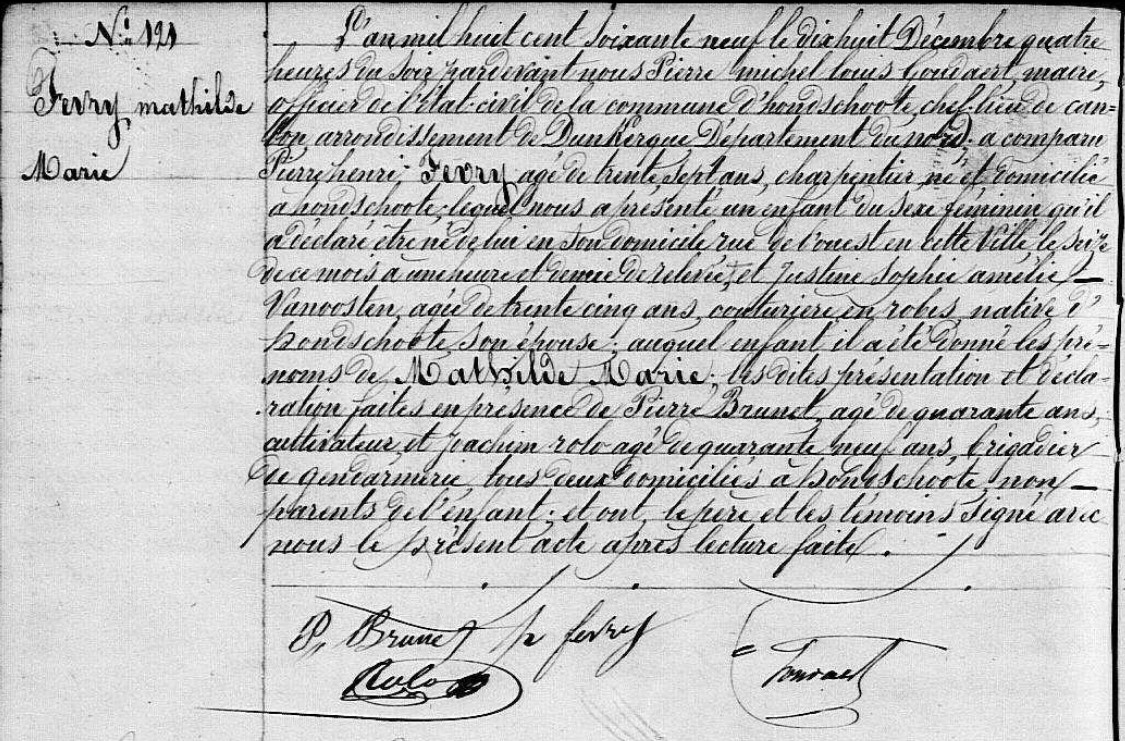 N.° 121
Fevry mathilde
Marie
L'an mil huit cent soixante neuf le dix huit Décembre quatre
heures du soir pardevant nous Pierre michel louis Coudaert, maire,
officier de l'Etat-civil de la commune d'hondschoote, chef-lieu de can=
ton arrondissement de Dunkerque Département du nord; a comparu
Pierre henri Fevry, agé de trente sept ans, charpentier, né et domicilié
à hondschoote; lequel nous a présenté un enfant du sexe féminin, qu'il
a déclaré être né de lui en son domicile rue de l'ouest en cette ville le seize
de ce mois à une heure et demie de relevée, et justine sophie amélie
Vanoosten, agée de trente cinq ans, couturière en robes, native d'
hondschoote, son épouse; auquel enfant il a été donné les pré-
noms de Mathilde Marie; les dites présentation et décla-
ration faites en présence de Pierre Brunet, agé de quarante ans,
cultivateur, et joachim rolo agé de quarante neuf ans, brigadier
de gendarmerie, tous deux domiciliés à hondschoote, non
parents de l'enfant; et ont, le père et les témoins signé avec
nous le présent acte après lecture faite.
P. Brunet p fevry
Rolo